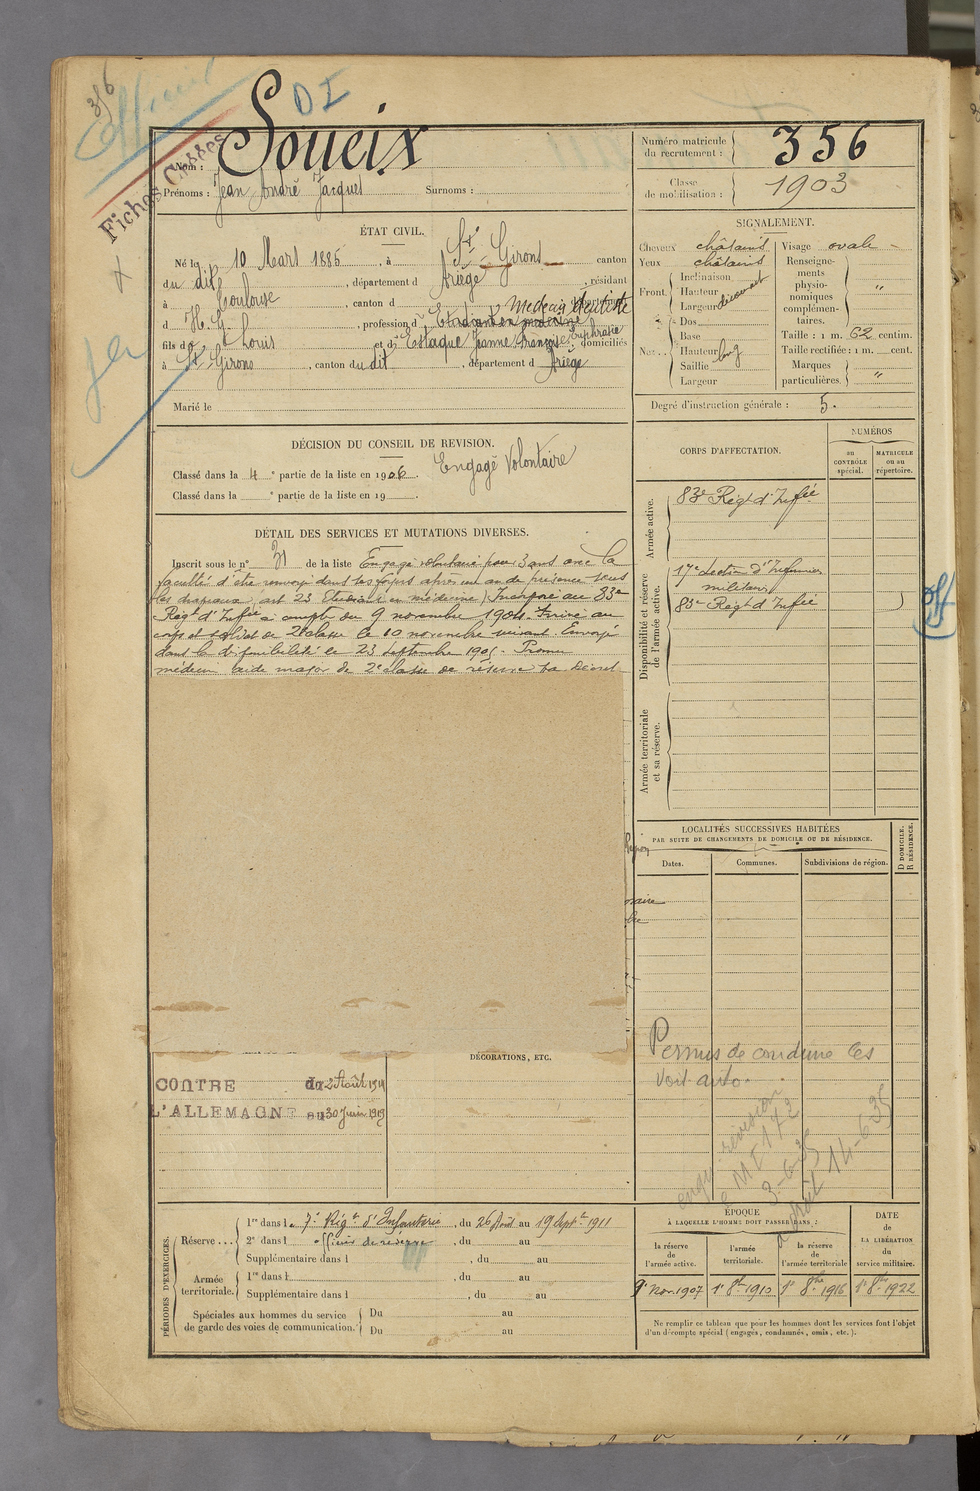 356
Officier
DI
Fiches Classées
Nom : Soueix
Prénoms : Jean André Jacques Surnoms :
Numéro matricule du recrutement : 356
Classe de mobilisation : 1903
ÉTAT CIVIL.
Né le 10 Mars 1886, à St Girons canton
du dit, département d Ariège, résidant
à Toulouse, canton d département
d H. G., profession d Etudiant en médecine Médecin dentiste
fils de Louis et de Estaque Jeanne Françoise Euphrasie domiciliés
à St Girons, canton du dit, département d Ariège
Marié le
SIGNALEMENT.
Cheveux châtains
Yeux châtains
Front. Inclinaison
Hauteur
Largeur découvert
Nez. Dos
Base
Hauteur long
Saillie
Largeur
Visage ovale
Renseignements physionomiques complémentaires. "
Taille : 1 m. 62 centim.
Taille rectifiée : 1 m. cent.
Marques particulières. "
Degré d'instruction générale : 5.
DÉCISION DU CONSEIL DE REVISION.
Classé dans la 4e partie de la liste en 1906. Engagé Volontaire
Classé dans la e partie de la liste en 19
DÉTAIL DES SERVICES ET MUTATIONS DIVERSES.
Inscrit sous le n° 31 de la liste Engagé volontaire pour 3 ans avec la
faculté d'être renvoyé dans ses foyers après un an de présence sous
les drapeaux, art 23 Etudiant en médecine) Incorporé au 83e
Régt d'Infie à compter du 9 novembre 1904. Arrivé au
corps et soldat de 2e classe le 10 novembre suivant. Envoyé
dans la disponibilité le 23 septembre 1905. Promu
médecin aide major de 2e classe de réserve par Décret
CORPS D'AFFECTATION.
NUMÉROS
au CONTRÔLE spécial.
MATRICULE ou au répertoire.
Armée active.
83e Régt d'Infie
Disponibilité et réserve de l'armée active.
17e Section d'Infirmiers
militaires
83e Régt d'Infie
Off
Armée territoriale et sa réserve.
LOCALITÉS SUCCESSIVES HABITÉES
PAR SUITE DE CHANGEMENTS DE DOMICILE OU DE RÉSIDENCE.
Dates.
Communes.
Subdivisions de région.
D DOMICILE.
R RÉSIDENCE.
Permis de conduire les
voit auto.
révision
MI 172
3-6-35
14-6-35
DÉCORATIONS, ETC.
CONTRE du 2 Août 1914
L'ALLEMAGNE au 30 Juin 1919
PÉRIODES D'EXERCICES.
Réserve...
1re dans le 7e Régt d'Infanterie, du 26 Août au 19 Septe 1911
2e dans l officiers de réserve, du au
Supplémentaire dans l , du au
Armée territoriale.
1re dans l , du au
Supplémentaire dans l , du au
Spéciales aux hommes du service de garde des voies de communication.
Du au
Du au
ÉPOQUE
À LAQUELLE L'HOMME DOIT PASSER DANS :
la réserve de l'armée active.
l'armée territoriale.
la réserve de l'armée territoriale
DATE de LA LIBÉRATION du service militaire.
9 nov. 1907
1r 8bre 1910
1r 8bre 1916
1r 8bre 1922
Ne remplir ce tableau que pour les hommes dont les services font l'objet
d'un décompte spécial (engagés, condamnés, omis, etc.).